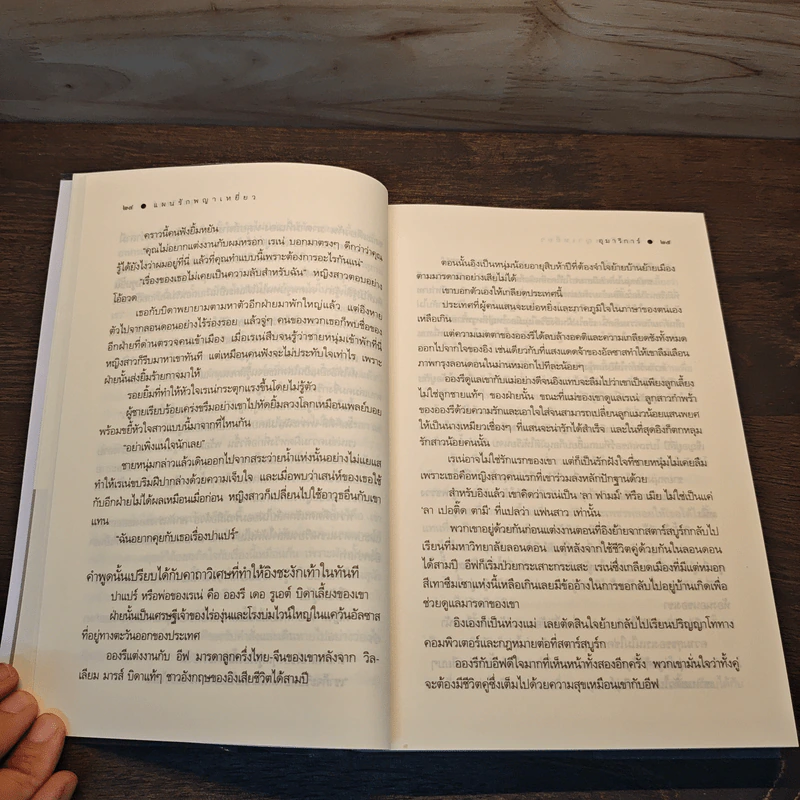 ๒๔ ● แผนรักพญาเหยี่ยว
คราวนี้คนฟังยิ้มหยัน
"คุณไม่อยากแต่งงานกับผมหรอก เรเน่ บอกมาตรงๆ ดีกว่าว่าคุณ
รู้ได้ยังไงว่าผมอยู่ที่นี่ แล้วที่คุณทำแบบนี้เพราะต้องการอะไรกันแน่"
"เรื่องของเธอไม่เคยเป็นความลับสำหรับฉัน" หญิงสาวตอบอย่าง
โอ้อวด
เธอกับบิดาพยายามตามหาตัวอีกฝ่ายมาพักใหญ่แล้ว แต่อิงหาย
ตัวไปจากลอนดอนอย่างไร้ร่องรอย แล้วจู่ๆ คนของพวกเธอก็พบชื่อของ
อีกฝ่ายที่ด่านตรวจคนเข้าเมือง เมื่อเรเน่สืบจนรู้ว่าชายหนุ่มเข้าพักที่นี่
หญิงสาวก็รีบมาหาเขาทันที แต่เหมือนคนฟังจะไม่ประทับใจเท่าไร เพราะ
ฝ่ายนั้นส่งยิ้มร้ายกาจมาให้
รอยยิ้มที่ทำให้หัวใจเรเน่กระตุกแรงขึ้นโดยไม่รู้ตัว
ผู้ชายเรียบร้อยเคร่งขรึมอย่างเขาไปหัดยิ้มลวงโลกเหมือนเพลย์บอย
พร้อมขยี้หัวใจสาวแบบนี้มาจากที่ไหนกัน
"อย่าเพิ่งแน่ใจนักเลย"
ชายหนุ่มกล่าวแล้วเดินออกไปจากสระว่ายน้ำแห่งนั้นอย่างไม่แยแส
ทำให้เรเน่ขบริมฝีปากล่างด้วยความเจ็บใจ และเมื่อพบว่าเสน่ห์ของเธอใช้
กับอีกฝ่ายไม่ได้ผลเหมือนเมื่อก่อน หญิงสาวก็เปลี่ยนไปใช้อาวุธอื่นกับเขา
แทน
"ฉันอยากคุยกับเธอเรื่องปาแปร์"
คำพูดนั้นเปรียบได้กับคาถาวิเศษที่ทำให้อิงชะงักเท้าในทันที
ปาแปร์ หรือพ่อของเรเน่ คือ อองรี เดอ รูเอต์ บิดาเลี้ยงของเขา
ฝ่ายนั้นเป็นเศรษฐีเจ้าของไร่องุ่นและโรงบ่มไวน์ใหญ่ในแคว้นอัลซาส
ที่อยู่ทางตะวันออกของประเทศ
อองรีแต่งงานกับ อีฟ มารดาลูกครึ่งไทย-จีนของเขาหลังจาก วิล-
เลียม มารส์ บิดาแท้ๆ ชาวอังกฤษของอิงเสียชีวิตได้สามปี
อุมาริการ์ ● ๒๕
ตอนนั้นอิงเป็นหนุ่มน้อยอายุสิบห้าปีที่ต้องจำใจย้ายบ้านย้ายเมือง
ตามมารดามาอย่างเสียไม่ได้
เขาบอกตัวเองให้เกลียดประเทศนี้
ประเทศที่ผู้คนแสนจะเย่อหยิ่งและภาคภูมิใจในภาษาของตนเอง
เหลือเกิน
แต่ความเมตตาของอองรีได้ลบล้างอคติและความเกลียดชังทั้งหมด
ออกไปจากใจของอิง เช่นเดียวกับที่แสงแดดเจ้าของอัลซาสทำให้เขาลืมเลือน
ภาพกรุงลอนดอนในม่านหมอกไปทีละน้อยๆ
อองรีดูแลเขากับแม่อย่างดีจนอิงแทบจะลืมไปว่าเขาเป็นเพียงลูกเลี้ยง
ไม่ใช่ลูกชายแท้ๆ ของฝ่ายนั้น ขณะที่แม่ของเขาดูแลเรเน่ ลูกสาวกำพร้า
ของอองรีด้วยความรักและเอาใจใส่จนสามารถเปลี่ยนลูกแมวน้อยแสนพยศ
ให้เป็นนางเหมียวเชื่องๆ ที่แสนจะน่ารักได้สำเร็จ และในที่สุดอิงก็ตกหลุม
รักสาวน้อยคนนั้น
เรเน่อาจไม่ใช่รักแรกของเขา แต่ก็เป็นรักฝังใจที่ชายหนุ่มไม่เคยลืม
เพราะเธอคือหญิงสาวคนแรกที่เขาร่วมลงหลักปักฐานด้วย
สำหรับอิงแล้ว เขาคิดว่าเรเน่เป็น 'ลา ฟามม์' หรือ เมีย ไม่ใช่เป็นแค่
'ลา เปอติ๊ด ตามี' ที่แปลว่า แฟนสาว เท่านั้น
พวกเขาอยู่ด้วยกันก่อนแต่งงานตอนที่อิงย้ายจากสตาร์สบูร์กกลับไป
เรียนที่มหาวิทยาลัยลอนดอน แต่หลังจากใช้ชีวิตคู่ด้วยกันในลอนดอน
ได้สามปี อีฟก็เริ่มป่วยกระเสาะกระแสะ เรเน่ซึ่งเกลียดเมืองที่มีแต่หมอก
สีเทาซึมเซาแห่งนี้เหลือเกินเลยมีข้ออ้างในการขอกลับไปอยู่บ้านเกิดเพื่อ
ช่วยดูแลมารดาของเขา
อิงเองก็เป็นห่วงแม่ เลยตัดสินใจย้ายกลับไปเรียนปริญญาโททาง
คอมพิวเตอร์และกฎหมายต่อที่สตาร์สบูร์ก
อองรีกับอีฟดีใจมากที่เห็นหน้าทั้งสองอีกครั้ง พวกเขามั่นใจว่าทั้งคู่
จะต้องมีชีวิตคู่ซึ่งเต็มไปด้วยความสุขเหมือนเขากับอีฟ